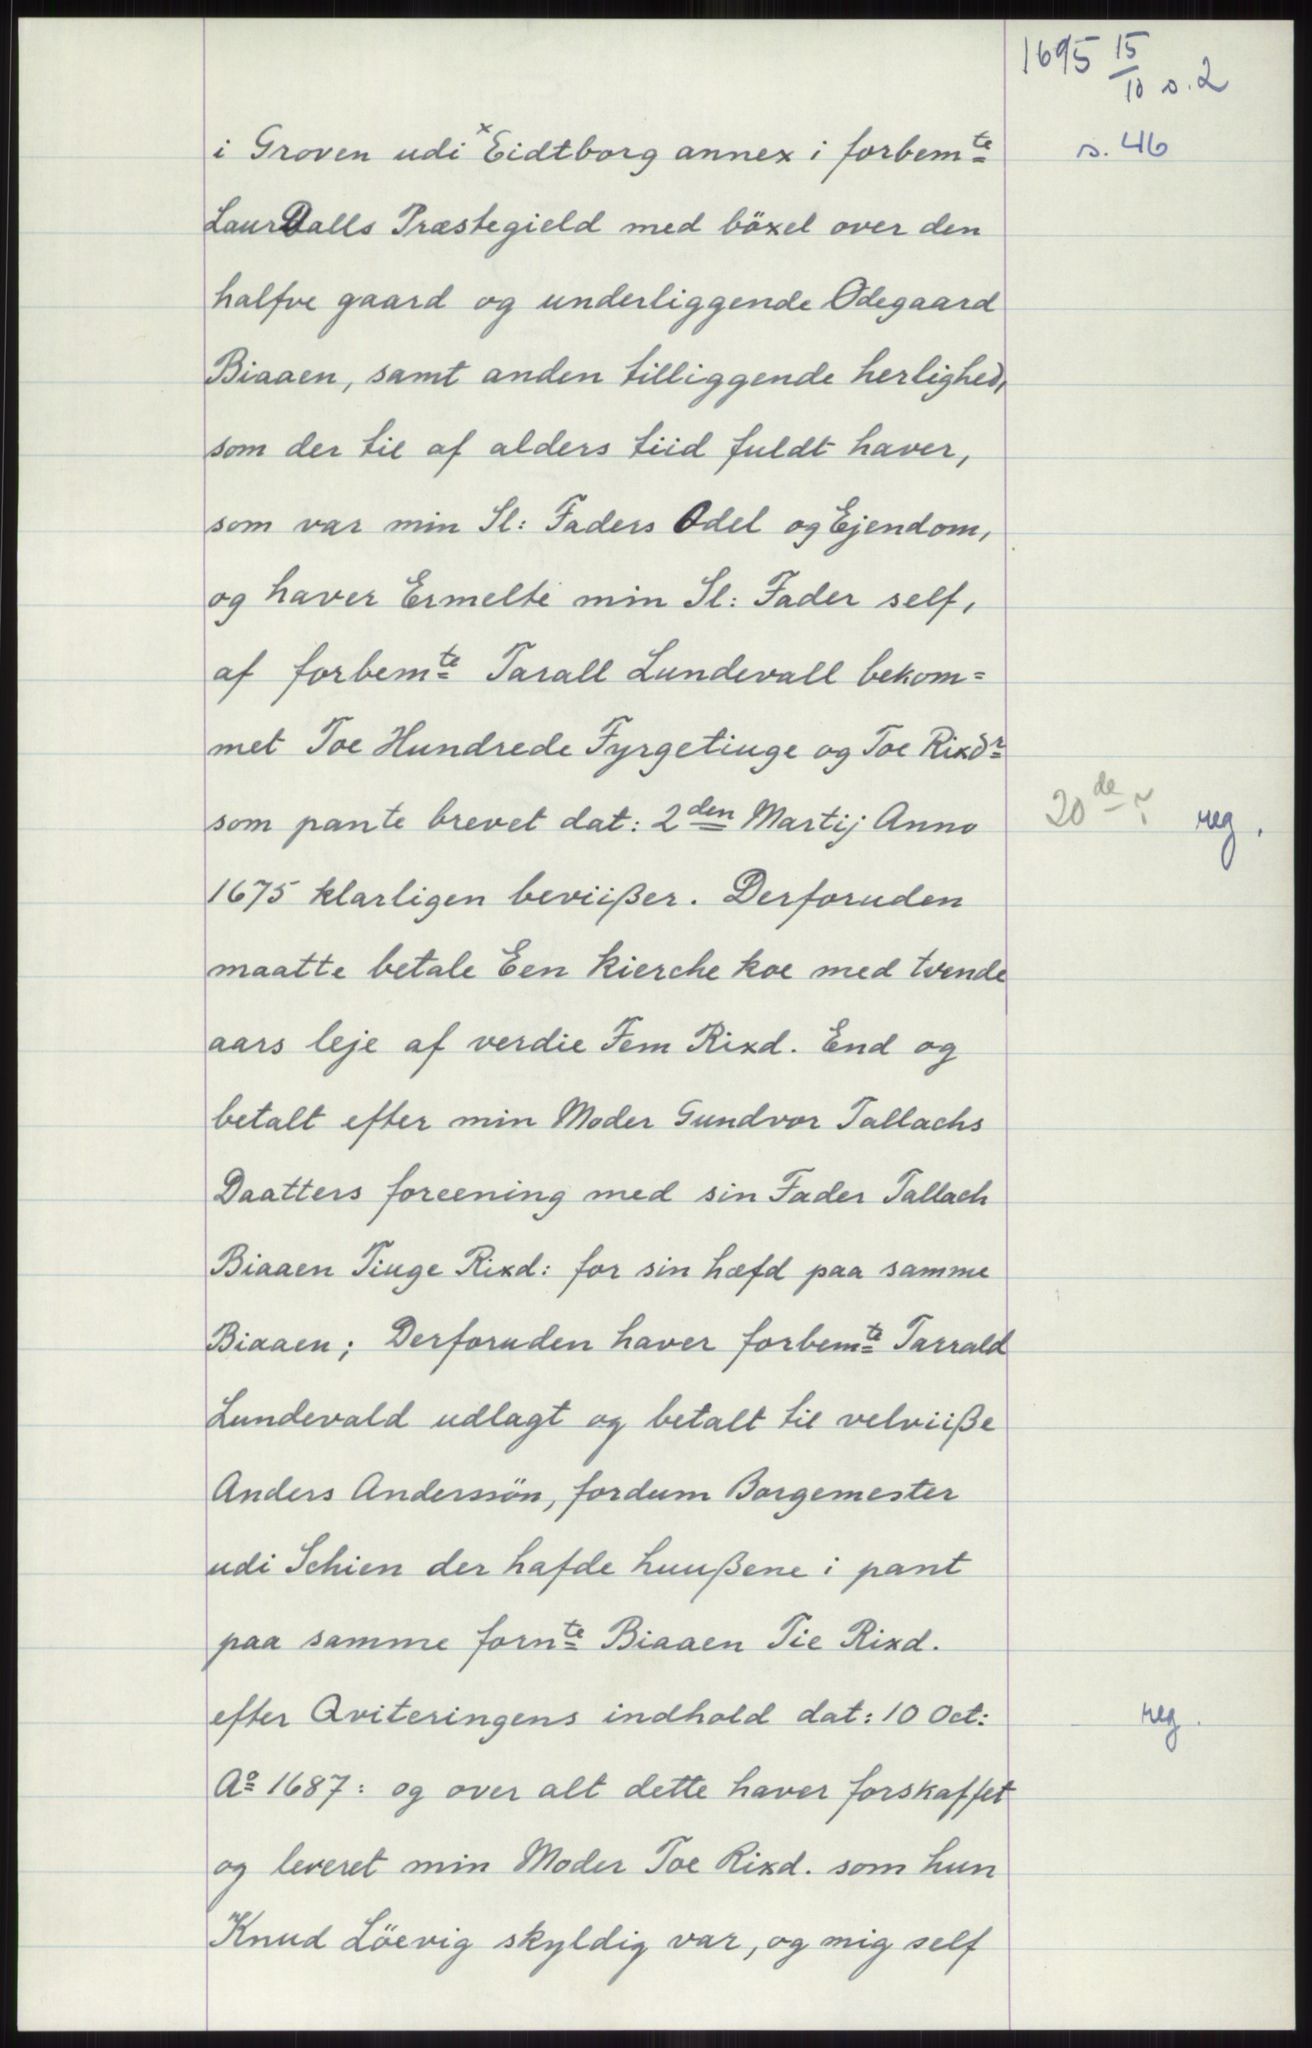 1695 15/10 s. 2
s. 46
i Groven udi x Eidtborg annex i forbemte
LaurDalls Præstegield med böxel over den
halfve gaard og underliggende Ødegaard
Biaaen, samt anden tilliggende herlighed,
som der til af alders tiid fuldt haver,
som var min Sl: Faders Odel og Ejendom,
og haver Ermelte min Sl: Fader self,
af forbemte Tarall Lundevall bekom=
met Toe Hundrede Fyrgetiuge og Toe Rixdr
som pante brevet dat: 2den Martij Anno
20de ? reg.
1675 klarligen beviißer. Derforuden
maatte betale Een kierche koe med tvende
aars leje af verdie Fem Rixd. End og
betalt efter min Moder Gundvor Tallachs
Daatters foreening med sin Fader Tallach
Biaaen Tiuge Rixd: for sin hæfd paa samme
Biaaen; Derforuden haver forbemte Tarrald
Lundevald udlagt og betalt til velviiße
Anders Anderssön, fordum Borgemester
udi Schien der hafde huußene i pant
paa samme fornte Biaaen Tie Rixd.
efter Qviteringens indhold dat: 10 Oct:
reg.
Ao 1687: og over alt dette haver forskaffet
og leveret min Moder Toe Rixd. som hun
Knud Löevig skyldig var, og mig self